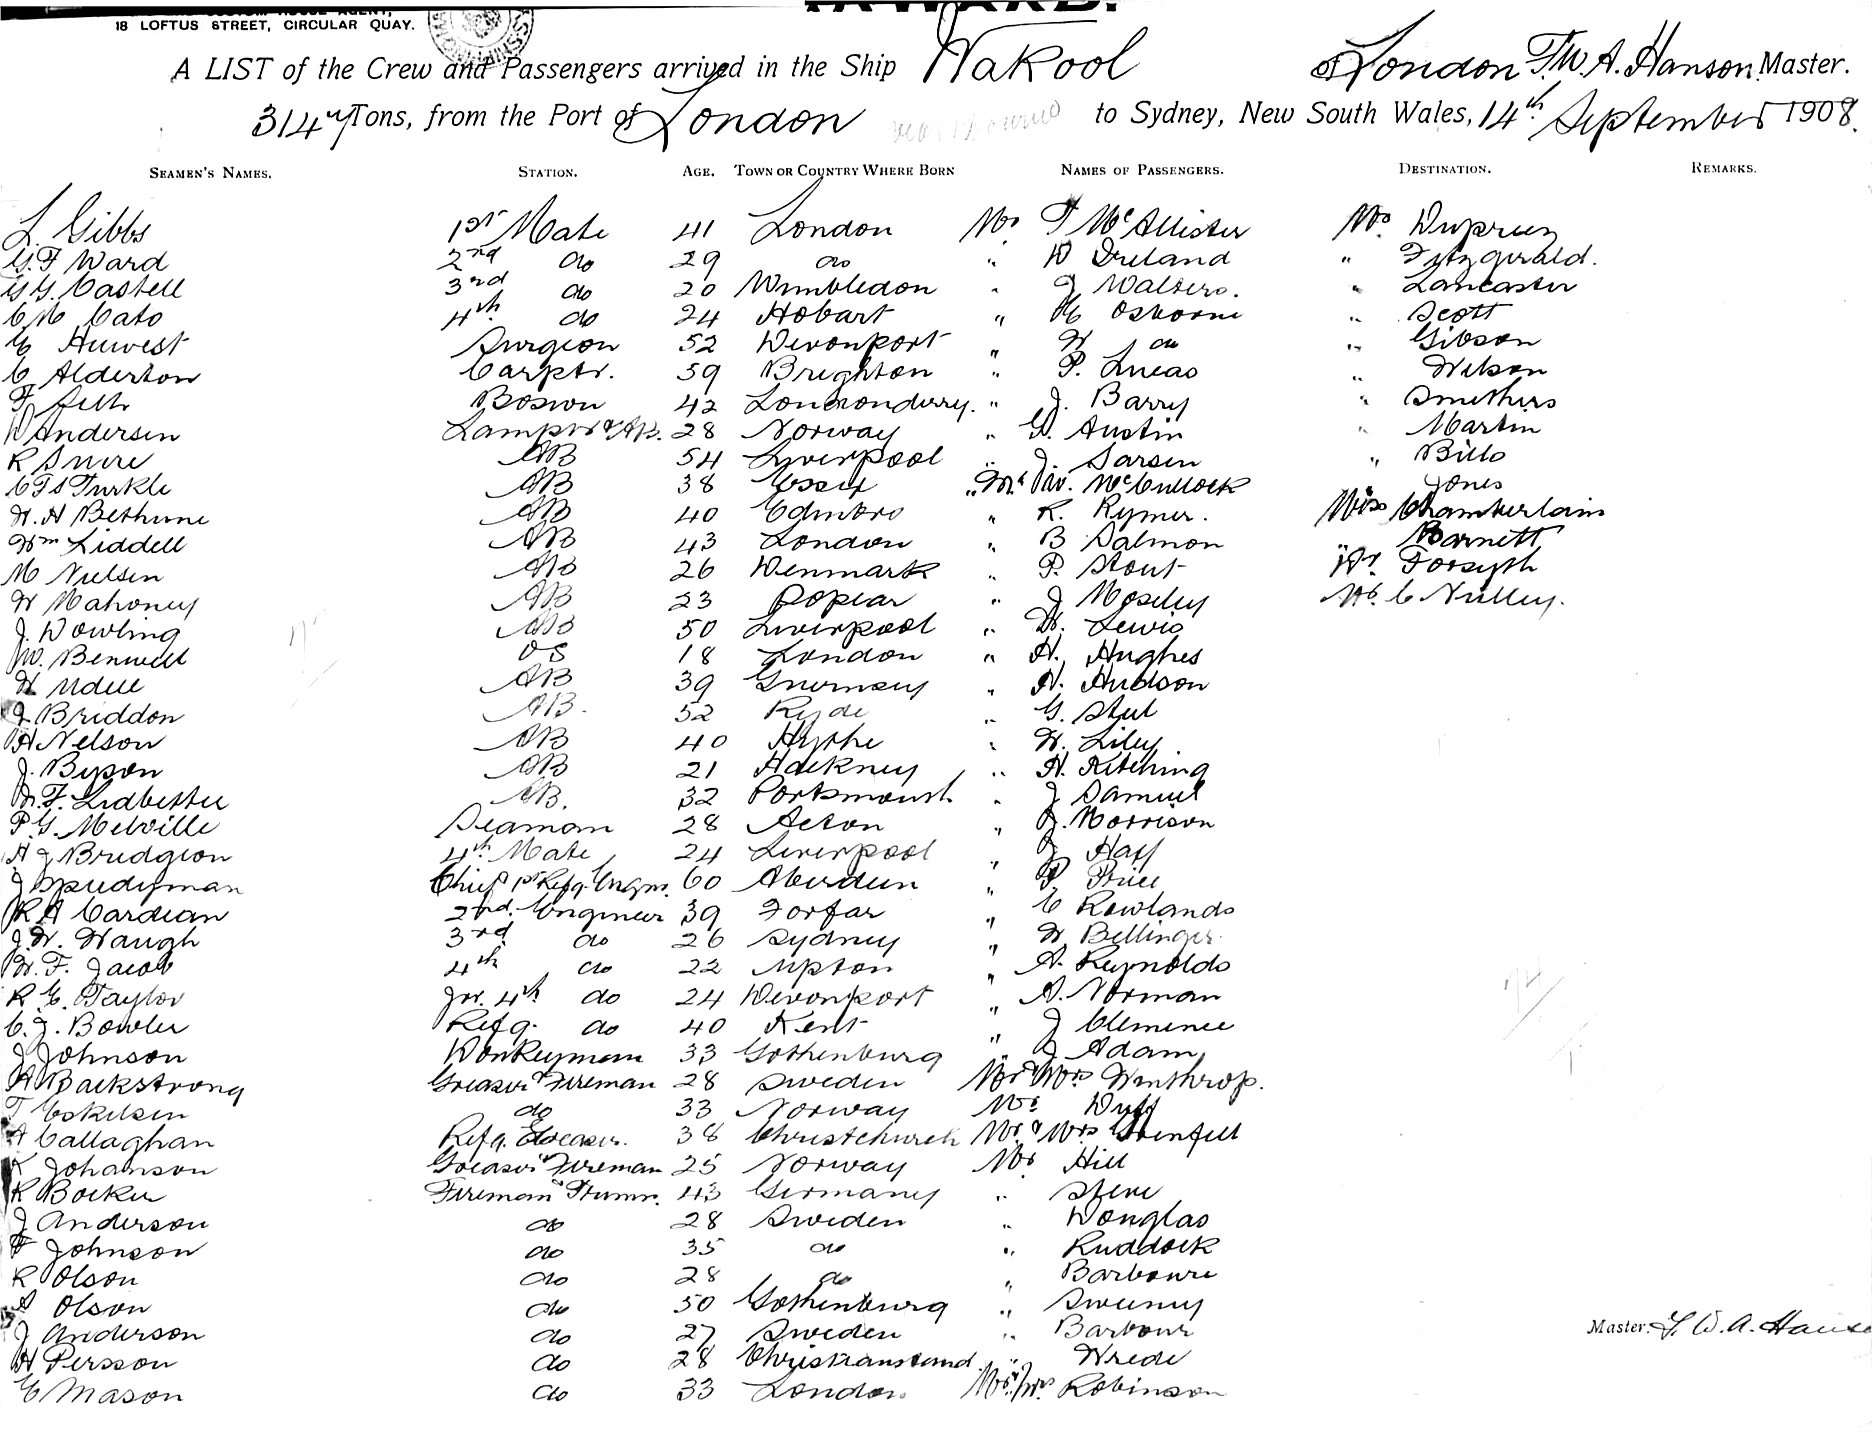 18 LOFTUS STREET, CIRCULAR QUAY.
INWARD.
A LIST of the Crew and Passengers arrived in the Ship Wakool of London F.W.A. Hanson Master.
3147 Tons, from the Port of London to Sydney, New South Wales, 14th September 1908.
SEAMEN'S NAMES. STATION. AGE. TOWN OR COUNTRY WHERE BORN NAMES OF PASSENGERS. DESTINATION. REMARKS.
L. Gibbs 1st Mate 41 London Mr McAllister Mr
Ward 2nd do 29 do " Ireland " Fitzgerald.
Castell 3rd do 20 Wimbledon " J Walters. " Lancaster
Cato 4th do 24 Hobart " Osborne " Scott
Surgeon 52 Devonport " W do " Gibson
C Alderton Carptr. 59 Brighton " P. Lucas " Wilson
Bosun 42 Londonderry. " J. Barry " Smithers
Andersen 28 Norway " Austin " Martin
R AB 54 Liverpool " J. Larsen "
Turkle AB 38 Essex McCullock Jones
W. H Bethune AB 40 Edinbro " R. Rymer. Miss Chamberlain
Wm Liddell AB 43 London " B Salmon " Barnett
M Nielsen AB 26 Denmark " P. Stout Forsyth
W Mahoney AB 23 Poplar " J Moseley C
J. Dowling AB 50 Liverpool " W. Lewis
OS 18 London " H. Hughes
W Udell AB 39 Guernsey " H. Hudson
J. Briddon AB. 52 Ryde " G. Steel
H Nelson AB 40 Hythe " W. Liley.
J. AB 21 Hackney " H. Kitching
Ledbetter AB. 32 Portsmouth " J Samuel
P. G. Melville Seaman 28 Acton " J. Morrison
H J 4th Mate 24 Liverpool " J
J Speedyman Chief 1st Refg. Engnr. 60 Aberdeen " P Price
R A 2nd. Engineer 39 Forfar " C Rowlands
J. W. Waugh 3rd do 26 Sydney " W Bellinger
W. F. Jacob 4th do 22 Upton " A. Reynolds
R E Taylor Jr. 4th do 24 Devonport " A. Norman
C. J. Bowler Refg. do 40 Kent " J Clemence
J Johnson Donkeyman 33 Gothenburg " J Adam
A Backstrong Greaser & Fireman 28 Sweden Mr & Mrs Winthrop.
T Eskelsen do 33 Norway Mr Duff
A Callaghan Refg. Greaser. 38 Christchurch Mr & Mrs Grenfell
K Johanson Greaser & Fireman 25 Norway Mr Hill
R Fireman & Trimr. 43 Germany "
J Anderson do 28 Sweden " Douglas
F Johnson do 35 do " Ruddock
R Olson do 28 do " Barboure
A Olson do 50 Gothenburg " Sweeney
J Anderson do 27 Sweden " Barbour
H Persson do 28 Christianstand " Wrede
C Mason do 33 London. Mr & Mrs Robinson
Master. F. W. A. Hanson